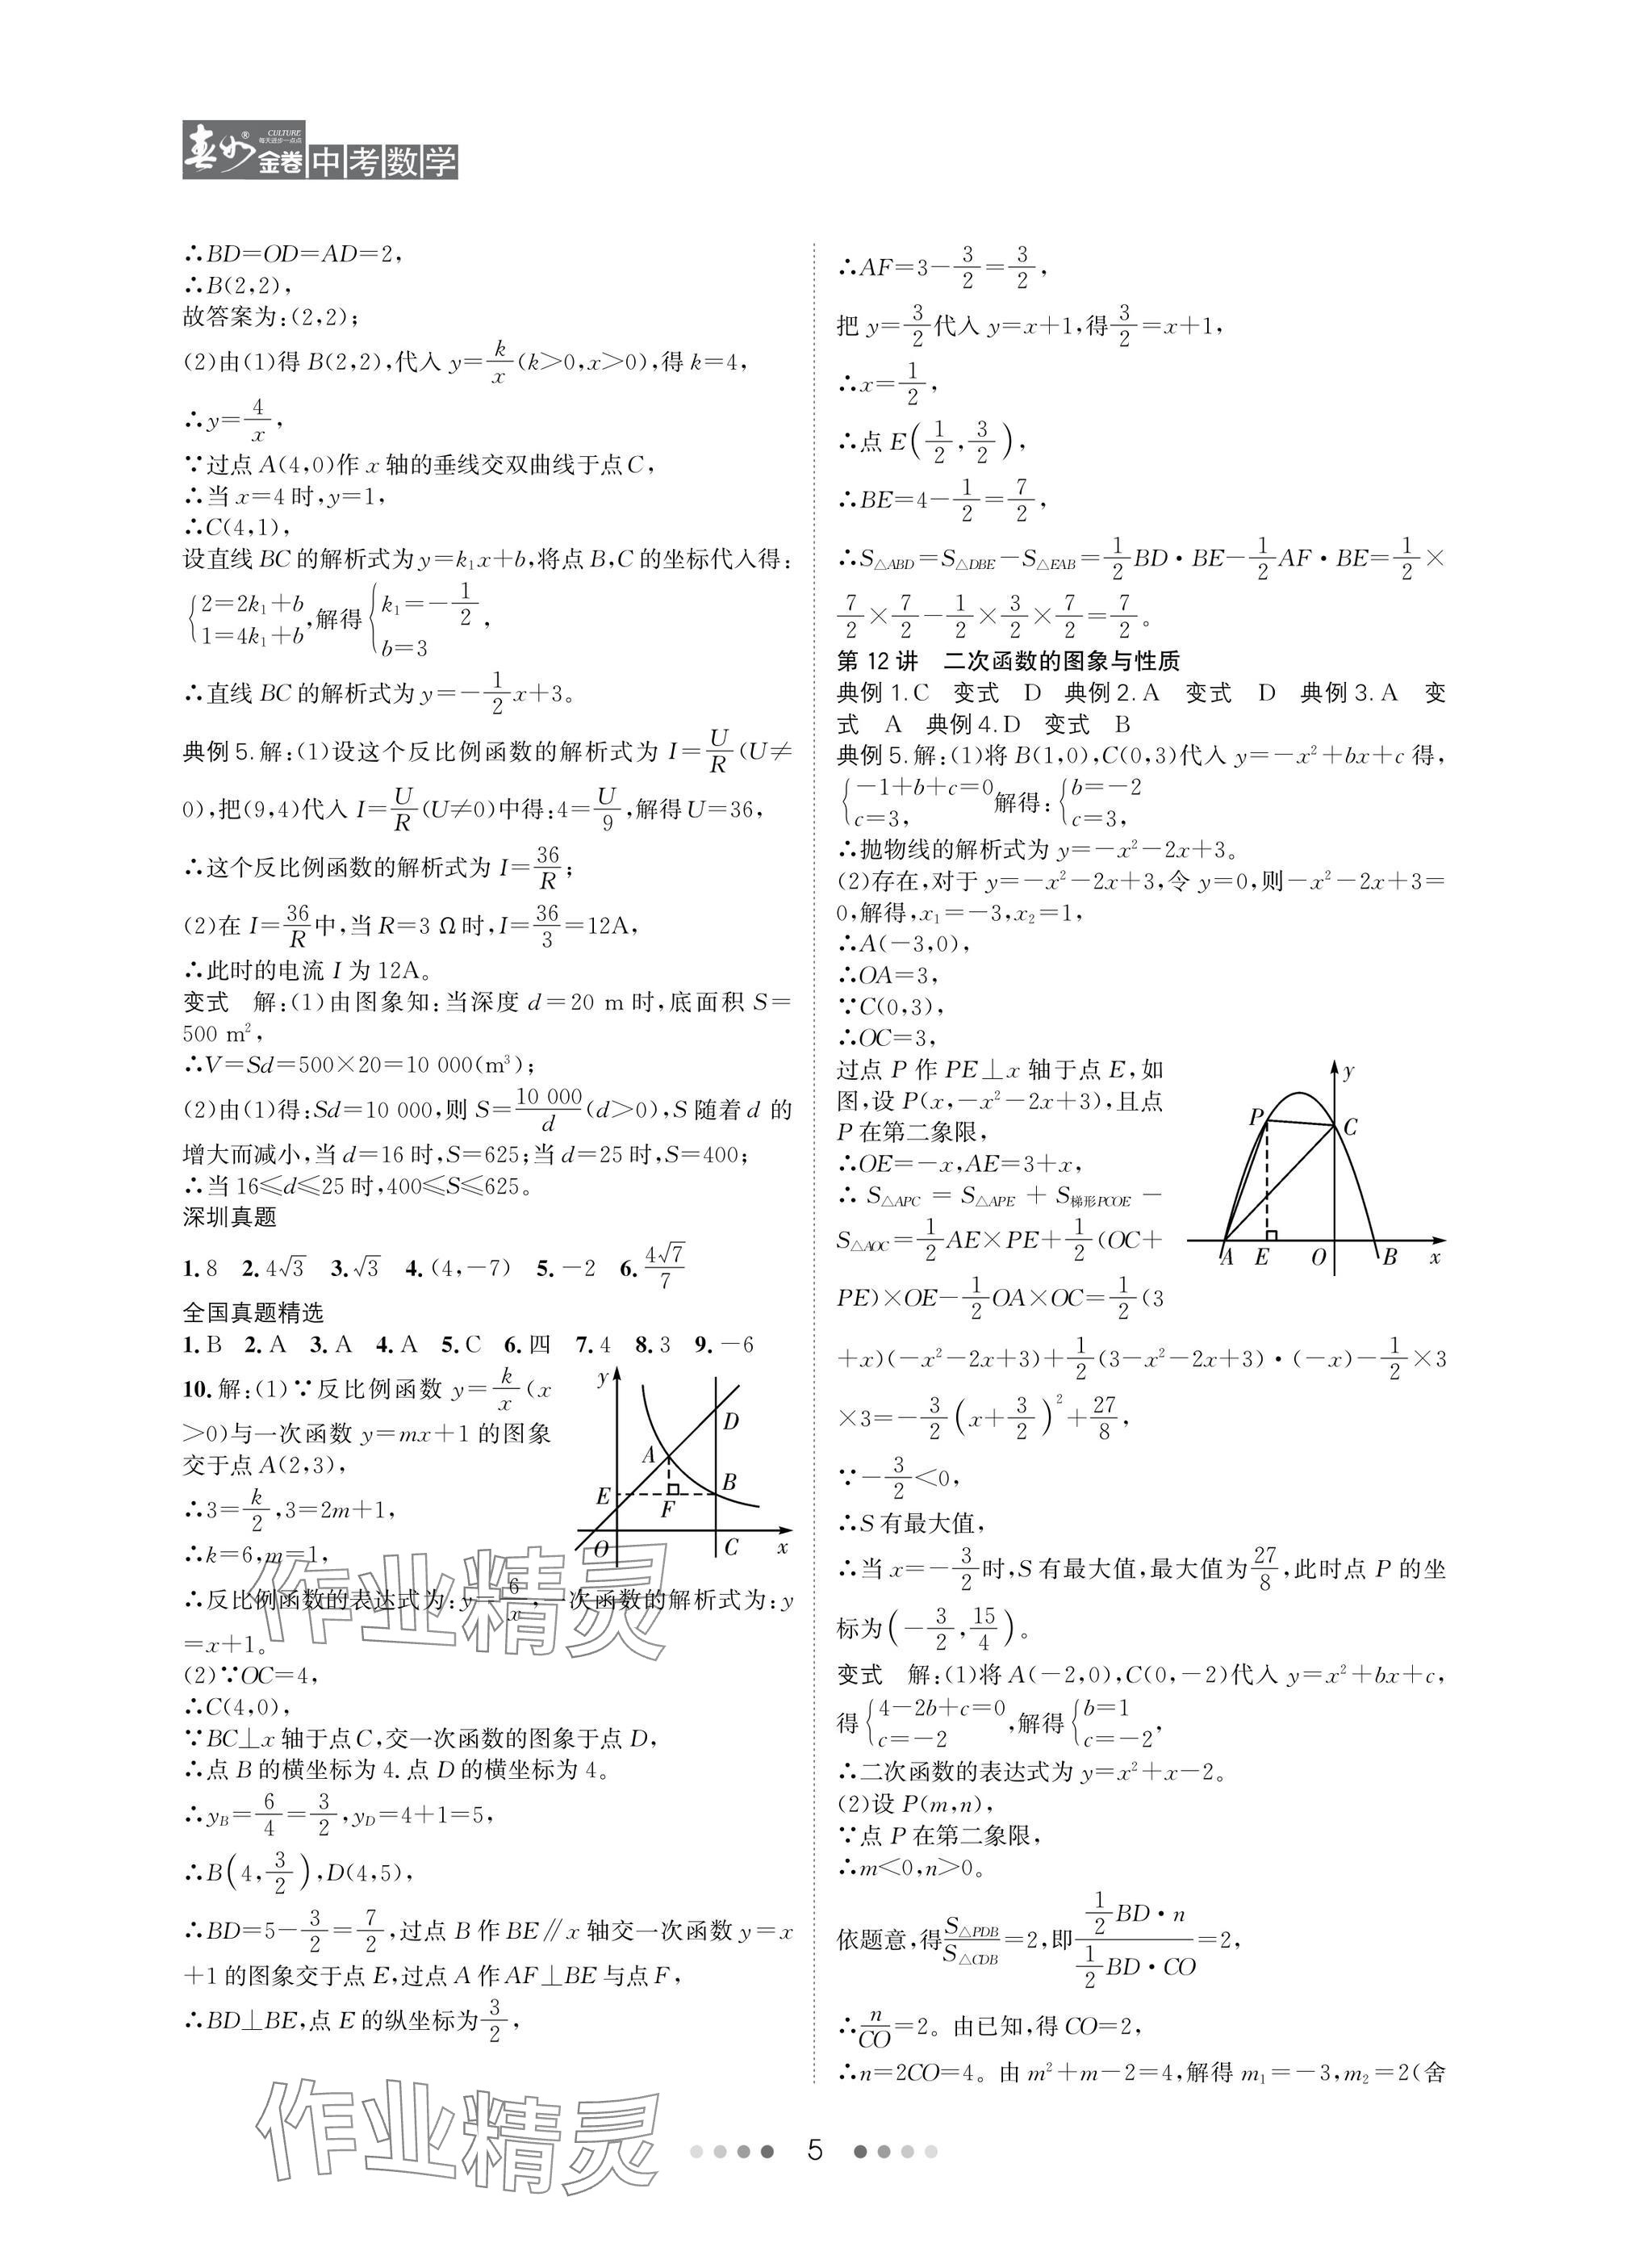 春如®金卷 CULTURE 每天进步一点点 中考数学
∴BD=OD=AD=2,
∴B(2,2),
故答案为:(2,2);
(2)由(1)得 B(2,2),代入 y=k/x(k>0,x>0),得 k=4,
∴y=4/x,
∵过点 A(4,0)作 x 轴的垂线交双曲线于点C,
∴当 x=4 时,y=1,
∴C(4,1),
设直线 BC 的解析式为 y=k₁x+b,将点 B,C 的坐标代入得:
{2=2k₁+b 1=4k₁+b,解得{k₁=-1/2, b=3
∴直线 BC 的解析式为 y=-1/2x+3。
典例 5. 解:(1)设这个反比例函数的解析式为 I=U/R(U≠
0),把(9,4)代入 I=U/R(U≠0)中得:4=U/9,解得U=36,
∴这个反比例函数的解析式为 I=36/R;
(2)在 I=36/R中,当 R=3 Ω 时,I=36/3=12A,
∴此时的电流 I 为 12A。
变式 解:(1)由图象知:当深度 d=20 m 时,底面积 S=
500 m²,
∴V=Sd=500×20=10 000(m³);
(2)由(1)得:Sd=10 000,则 S=10 000/d(d>0),S 随着 d 的
增大而减小,当 d=16 时,S=625;当 d=25 时,S=400;
∴当 16≤d≤25 时,400≤S≤625。
深圳真题
1. 8 2. 4√3 3. √3 4. (4,-7) 5. -2 6. 4√7/7
全国真题精选
1. B 2. A 3. A 4. A 5. C 6. 四 7. 4 8. 3 9. -6
10. 解:(1)∵反比例函数 y=k/x(x
>0)与一次函数 y=mx+1 的图象
交于点 A(2,3),
∴3=k/2,3=2m+1,
∴k=6,m=1,
y D A B E F O C x
∴反比例函数的表达式为:y=6/x,一次函数的解析式为:y
=x+1。
(2)∵OC=4,
∴C(4,0),
∵BC⊥x 轴于点C,交一次函数的图象于点 D,
∴点 B 的横坐标为 4. 点 D 的横坐标为 4。
∴y_B=6/4=3/2,y_D=4+1=5,
∴B(4,3/2),D(4,5),
∴BD=5-3/2=7/2,过点 B 作 BE∥x 轴交一次函数 y=x
+1 的图象交于点 E,过点 A 作 AF⊥BE 与点 F,
∴BD⊥BE,点 E 的纵坐标为3/2,
∴AF=3-3/2=3/2,
把 y=3/2代入 y=x+1,得3/2=x+1,
∴x=1/2,
∴点 E(1/2,3/2),
∴BE=4-1/2=7/2,
∴S△ABD=S△DBE-S△EAB=1/2BD·BE-1/2AF·BE=1/2×
7/2×7/2-1/2×3/2×7/2=7/2。
第 12 讲 二次函数的图象与性质
典例 1. C 变式 D 典例 2. A 变式 D 典例 3. A 变
式 A 典例 4. D 变式 B
典例 5. 解:(1)将 B(1,0),C(0,3)代入 y=-x²+bx+c 得,
{-1+b+c=0 c=3, 解得:{b=-2 c=3,
∴抛物线的解析式为 y=-x²-2x+3。
(2)存在,对于 y=-x²-2x+3,令 y=0,则-x²-2x+3=
0,解得,x₁=-3,x₂=1,
∴A(-3,0),
∴OA=3,
∵C(0,3),
∴OC=3,
过点 P 作 PE⊥x 轴于点 E,如
图,设 P(x,-x²-2x+3),且点
P 在第二象限,
∴OE=-x,AE=3+x,
∴ S△APC = S△APE + S梯形PCOE -
S△AOC=1/2AE×PE+1/2(OC+
PE)×OE-1/2OA×OC=1/2(3
y P C A E O B x
+x)(-x²-2x+3)+1/2(3-x²-2x+3)·(-x)-1/2×3
×3=-3/2(x+3/2)²+27/8,
∵-3/2<0,
∴S 有最大值,
∴当 x=-3/2时,S 有最大值,最大值为27/8,此时点 P 的坐
标为(-3/2,15/4)。
变式 解:(1)将 A(-2,0),C(0,-2)代入 y=x²+bx+c,
得{4-2b+c=0 c=-2,解得{b=1 c=-2,
∴二次函数的表达式为 y=x²+x-2。
(2)设 P(m,n),
∵点 P 在第二象限,
∴m<0,n>0。
依题意,得S△PDB/S△CDB=2,即(1/2BD·n)/(1/2BD·CO)=2,
∴n/CO=2。由已知,得 CO=2,
∴n=2CO=4。由 m²+m-2=4,解得 m₁=-3,m₂=2(舍
作业精灵
作业精灵
5